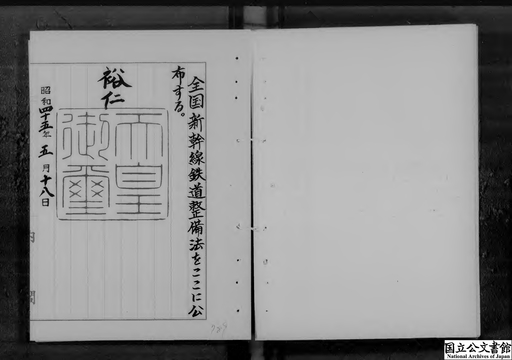 全国新幹線鉄道整備法をここに公
布する。
裕仁
天皇
御璽
昭和四十五年五月十八日
内閣
国立公文書館
National Archives of Japan